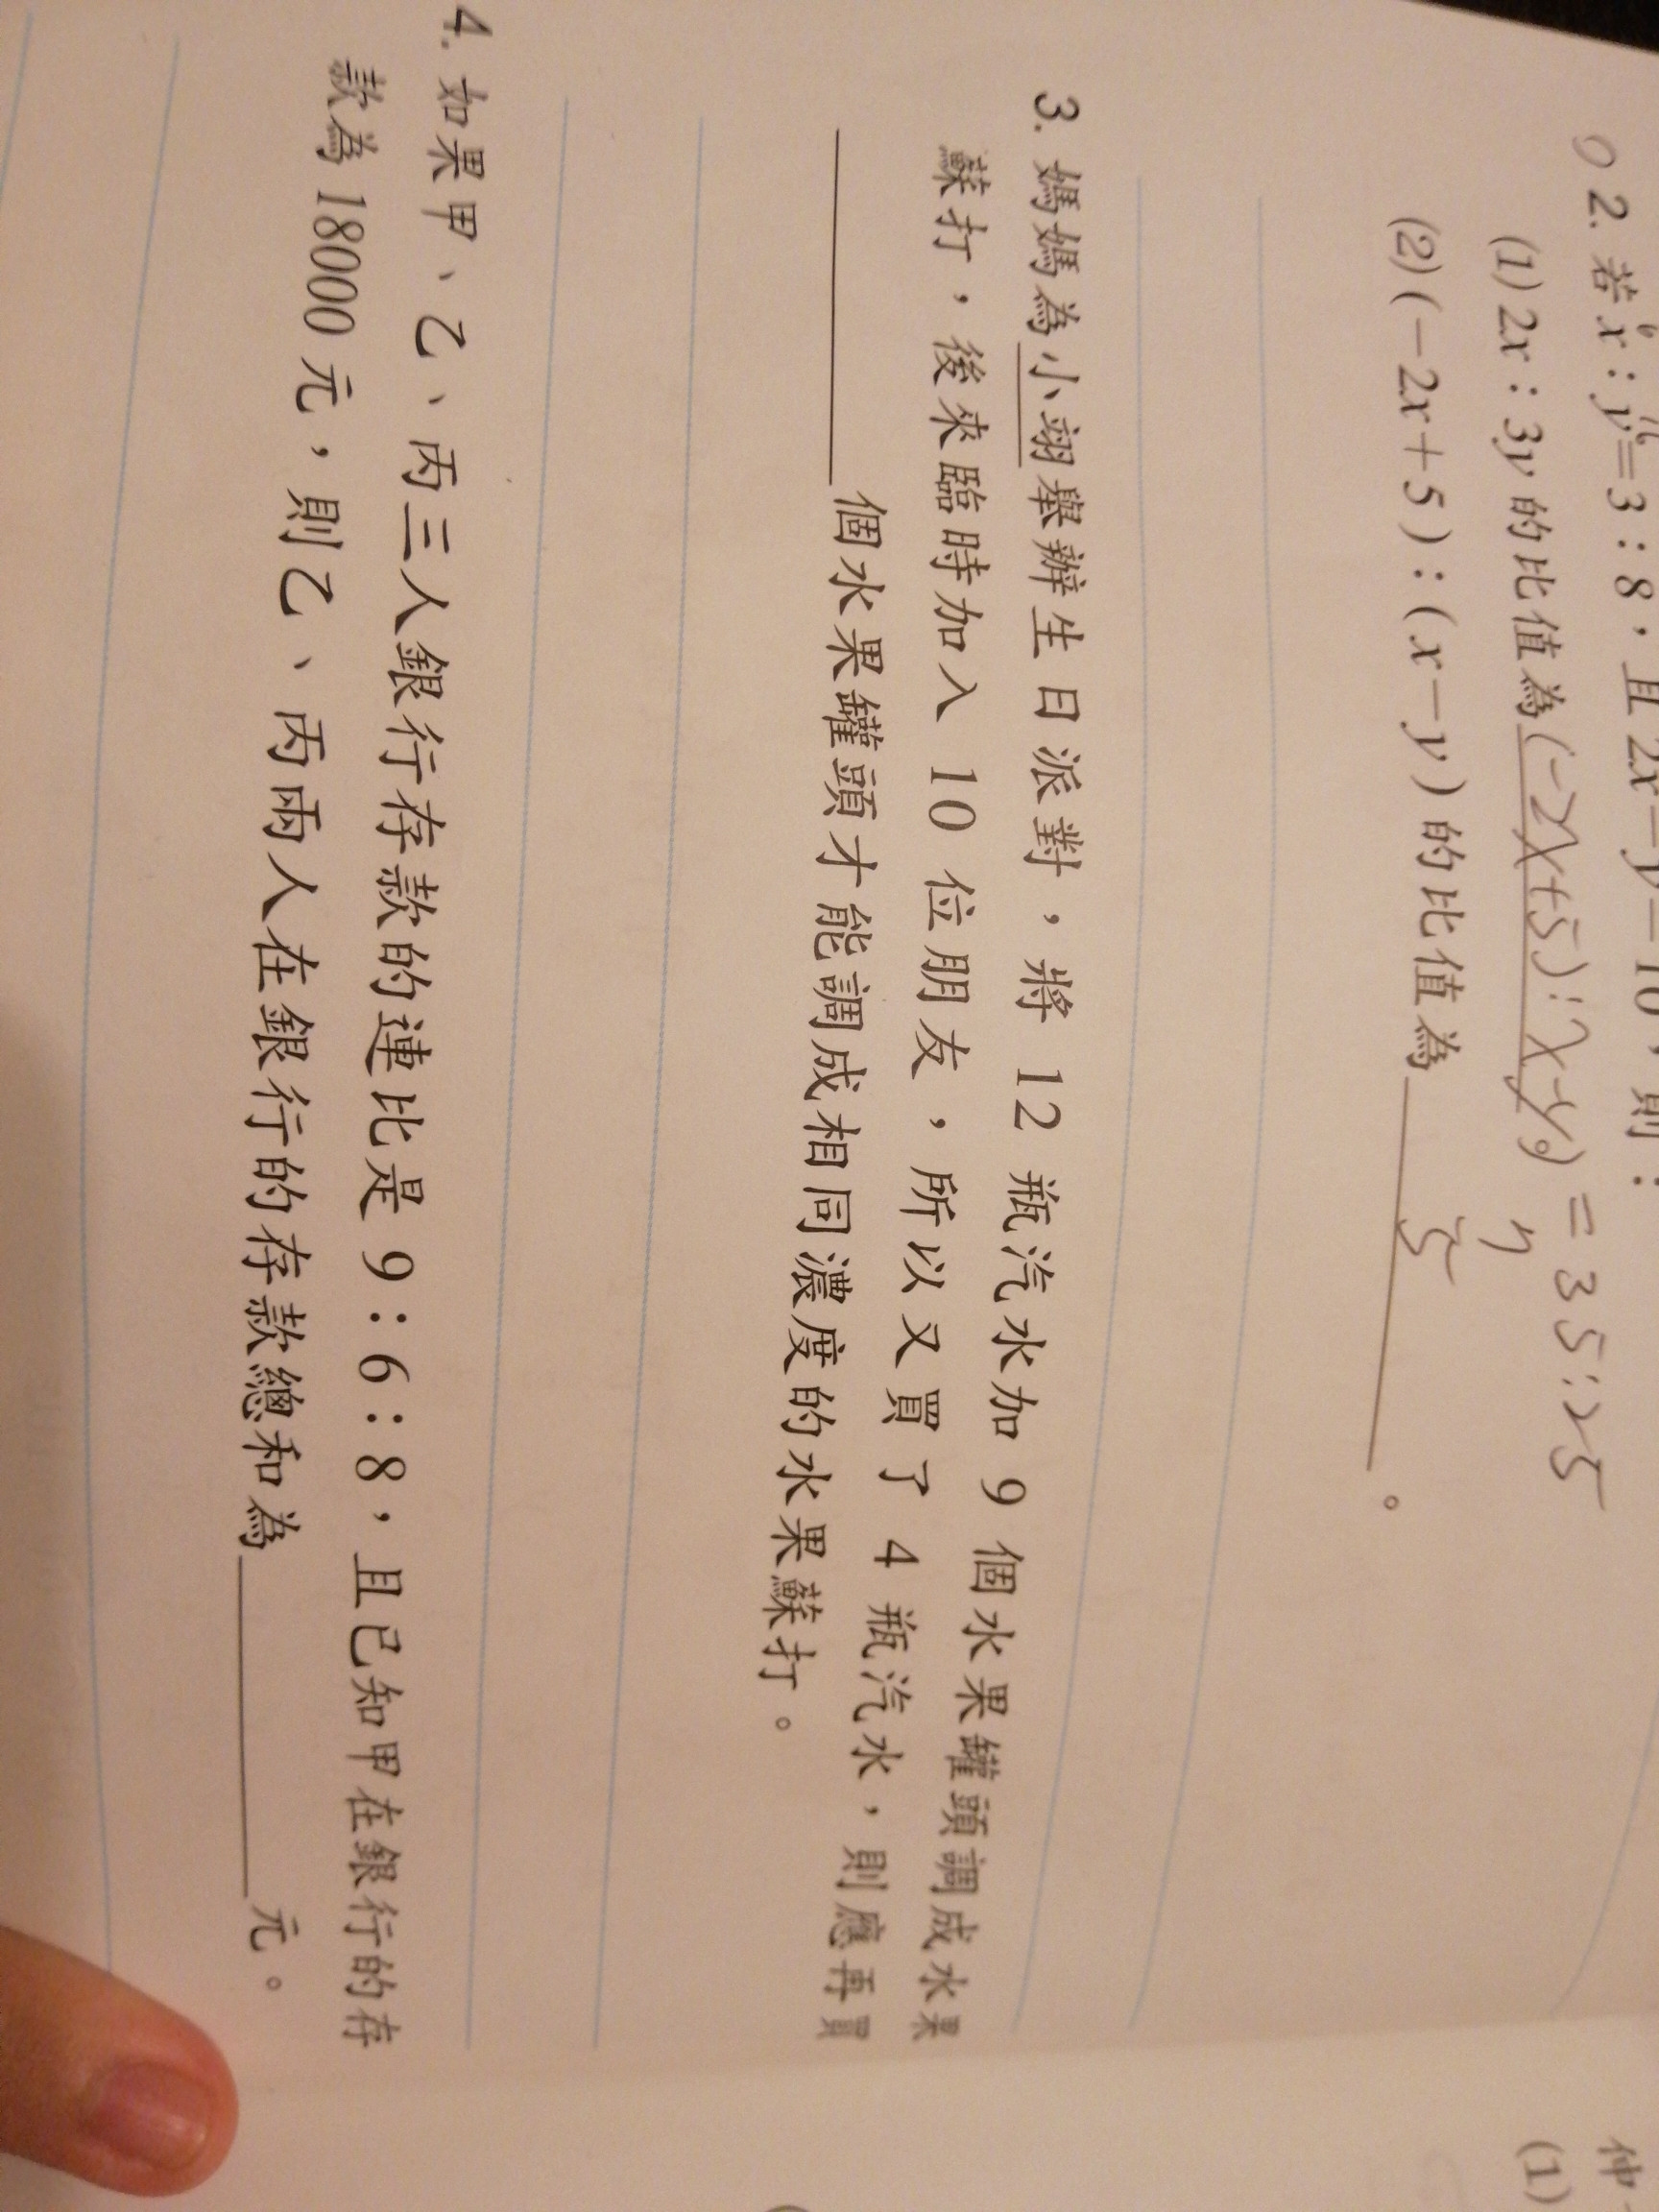 2. 若 x：y=3：8，且 2x－y=－10，則：
(1) 2x：3y 的比值為 (-2x+5):(x-y) = 35:25
(2) (－2x+5)：(x－y) 的比值為 。
3. 媽媽為小翊舉辦生日派對，將 12 瓶汽水加 9 個水果罐頭調成水果
蘇打，後來臨時加入 10 位朋友，所以又買了 4 瓶汽水，則應再買
個水果罐頭才能調成相同濃度的水果蘇打。
4. 如果甲、乙、丙三人銀行存款的連比是 9：6：8，且已知甲在銀行的存
款為 18000 元，則乙、丙兩人在銀行的存款總和為 元。
(1)